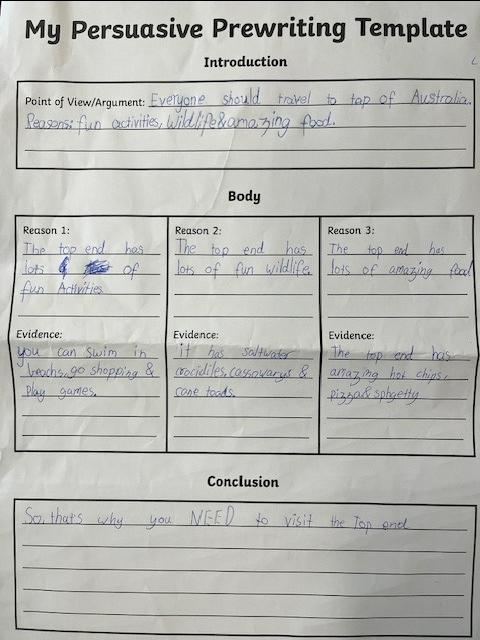 My Persuasive Prewriting Template
Introduction
Point of View/Argument: Everyone should travel to top of Australia.
Reasons: fun activities, Wildlife & amazing food.
Body
Reason 1:
The top end has
lots of
fun Activities
Reason 2:
The top end has
lots of fun wildlife.
Reason 3:
The top end has
lots of amazing food
Evidence:
you can swim in
beachs, go shopping &
Play games.
Evidence:
it has saltwater
crocidiles, cassowarys &
cane toads.
Evidence:
The top end has
amazing hot chips,
pizza & sphgetty
Conclusion
So, that's why you NEED to visit the Top end